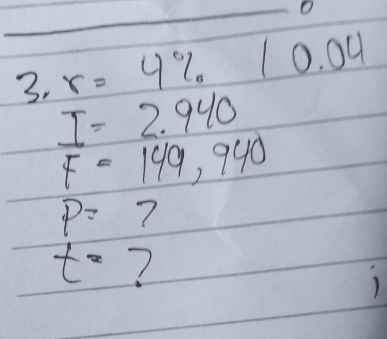 3. r = 4% | 0.04
I = 2.940
F = 149,940
P = ?
t = ?